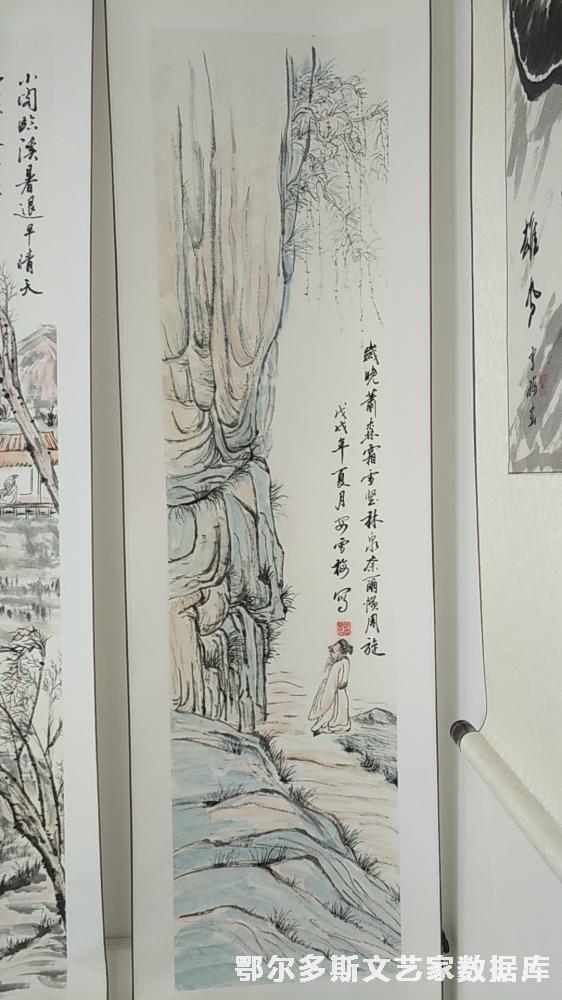 歲晚蕭森霜雪堅林泉奈爾慣周旋
戊戌年夏月安雪梅寫
小閣臨溪暑退早晴天
雄风
鄂尔多斯文艺家数据库